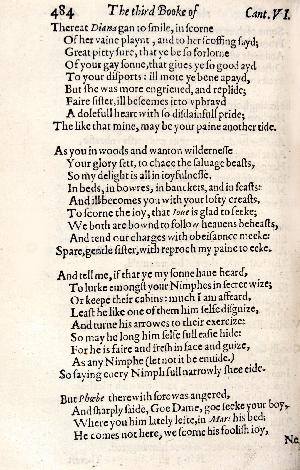 484 The third Booke of Cant. VI.
Thereat Diana gan to smile, in scorne
Of her vaine playnt, and to her scoffing sayd;
Great pitty sure, that ye be so forlorne
Of your gay sonne, that giues ye so good ayd
To your disports: ill mote ye bene apayd,
But she was more engrieued, and replide;
Faire sister, ill beseemes it to vpbrayd
A dolefull heart with so disdainfull pride;
The like that mine, may be your paine another tide.
As you in woods and wanton wildernesse
Your glory sett, to chace the saluage beasts,
So my delight is all in ioyfulnesse,
In beds, in bowres, in banckets, and in feasts:
And ill becomes you with your lofty creasts,
To scorne the ioy, that Ioue is glad to seeke;
We both are bownd to follow heauens beheasts,
And tend our charges with obeisaunce meeke:
Spare, gentle sister, with reproch my paine to eeke.
And tell me, if that ye my sonne haue heard,
To lurke emongst your Nimphes in secret wize;
Or keepe their cabins: much I am affeard,
Least he like one of them him selfe disguize,
And turne his arrowes to their exercize:
So may he long him selfe full easie hide:
For he is faire and fresh in face and guize,
As any Nimphe (let not it be enuide.)
So saying euery Nimph full narrowly shee eide.
But Phœbe therewith sore was angered,
And sharply saide, Goe Dame, goe seeke your boy,
Where you him lately lefte, in Mars his bed;
He comes not here, we scorne his foolish ioy,
Ne